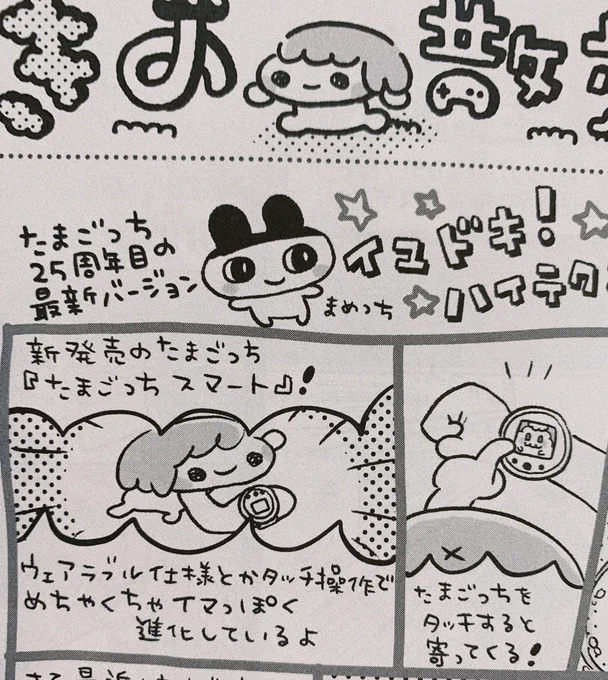 お 散
たまごっち
25周年目の
最新バージョン
まめっち
イマドキ!
ハイテク
新発売のたまごっち
『たまごっち スマート』!
ウェアラブル仕様とかタッチ操作で
めちゃくちゃイマっぽく
進化しているよ
たまごっちを
タッチすると
寄ってくる!